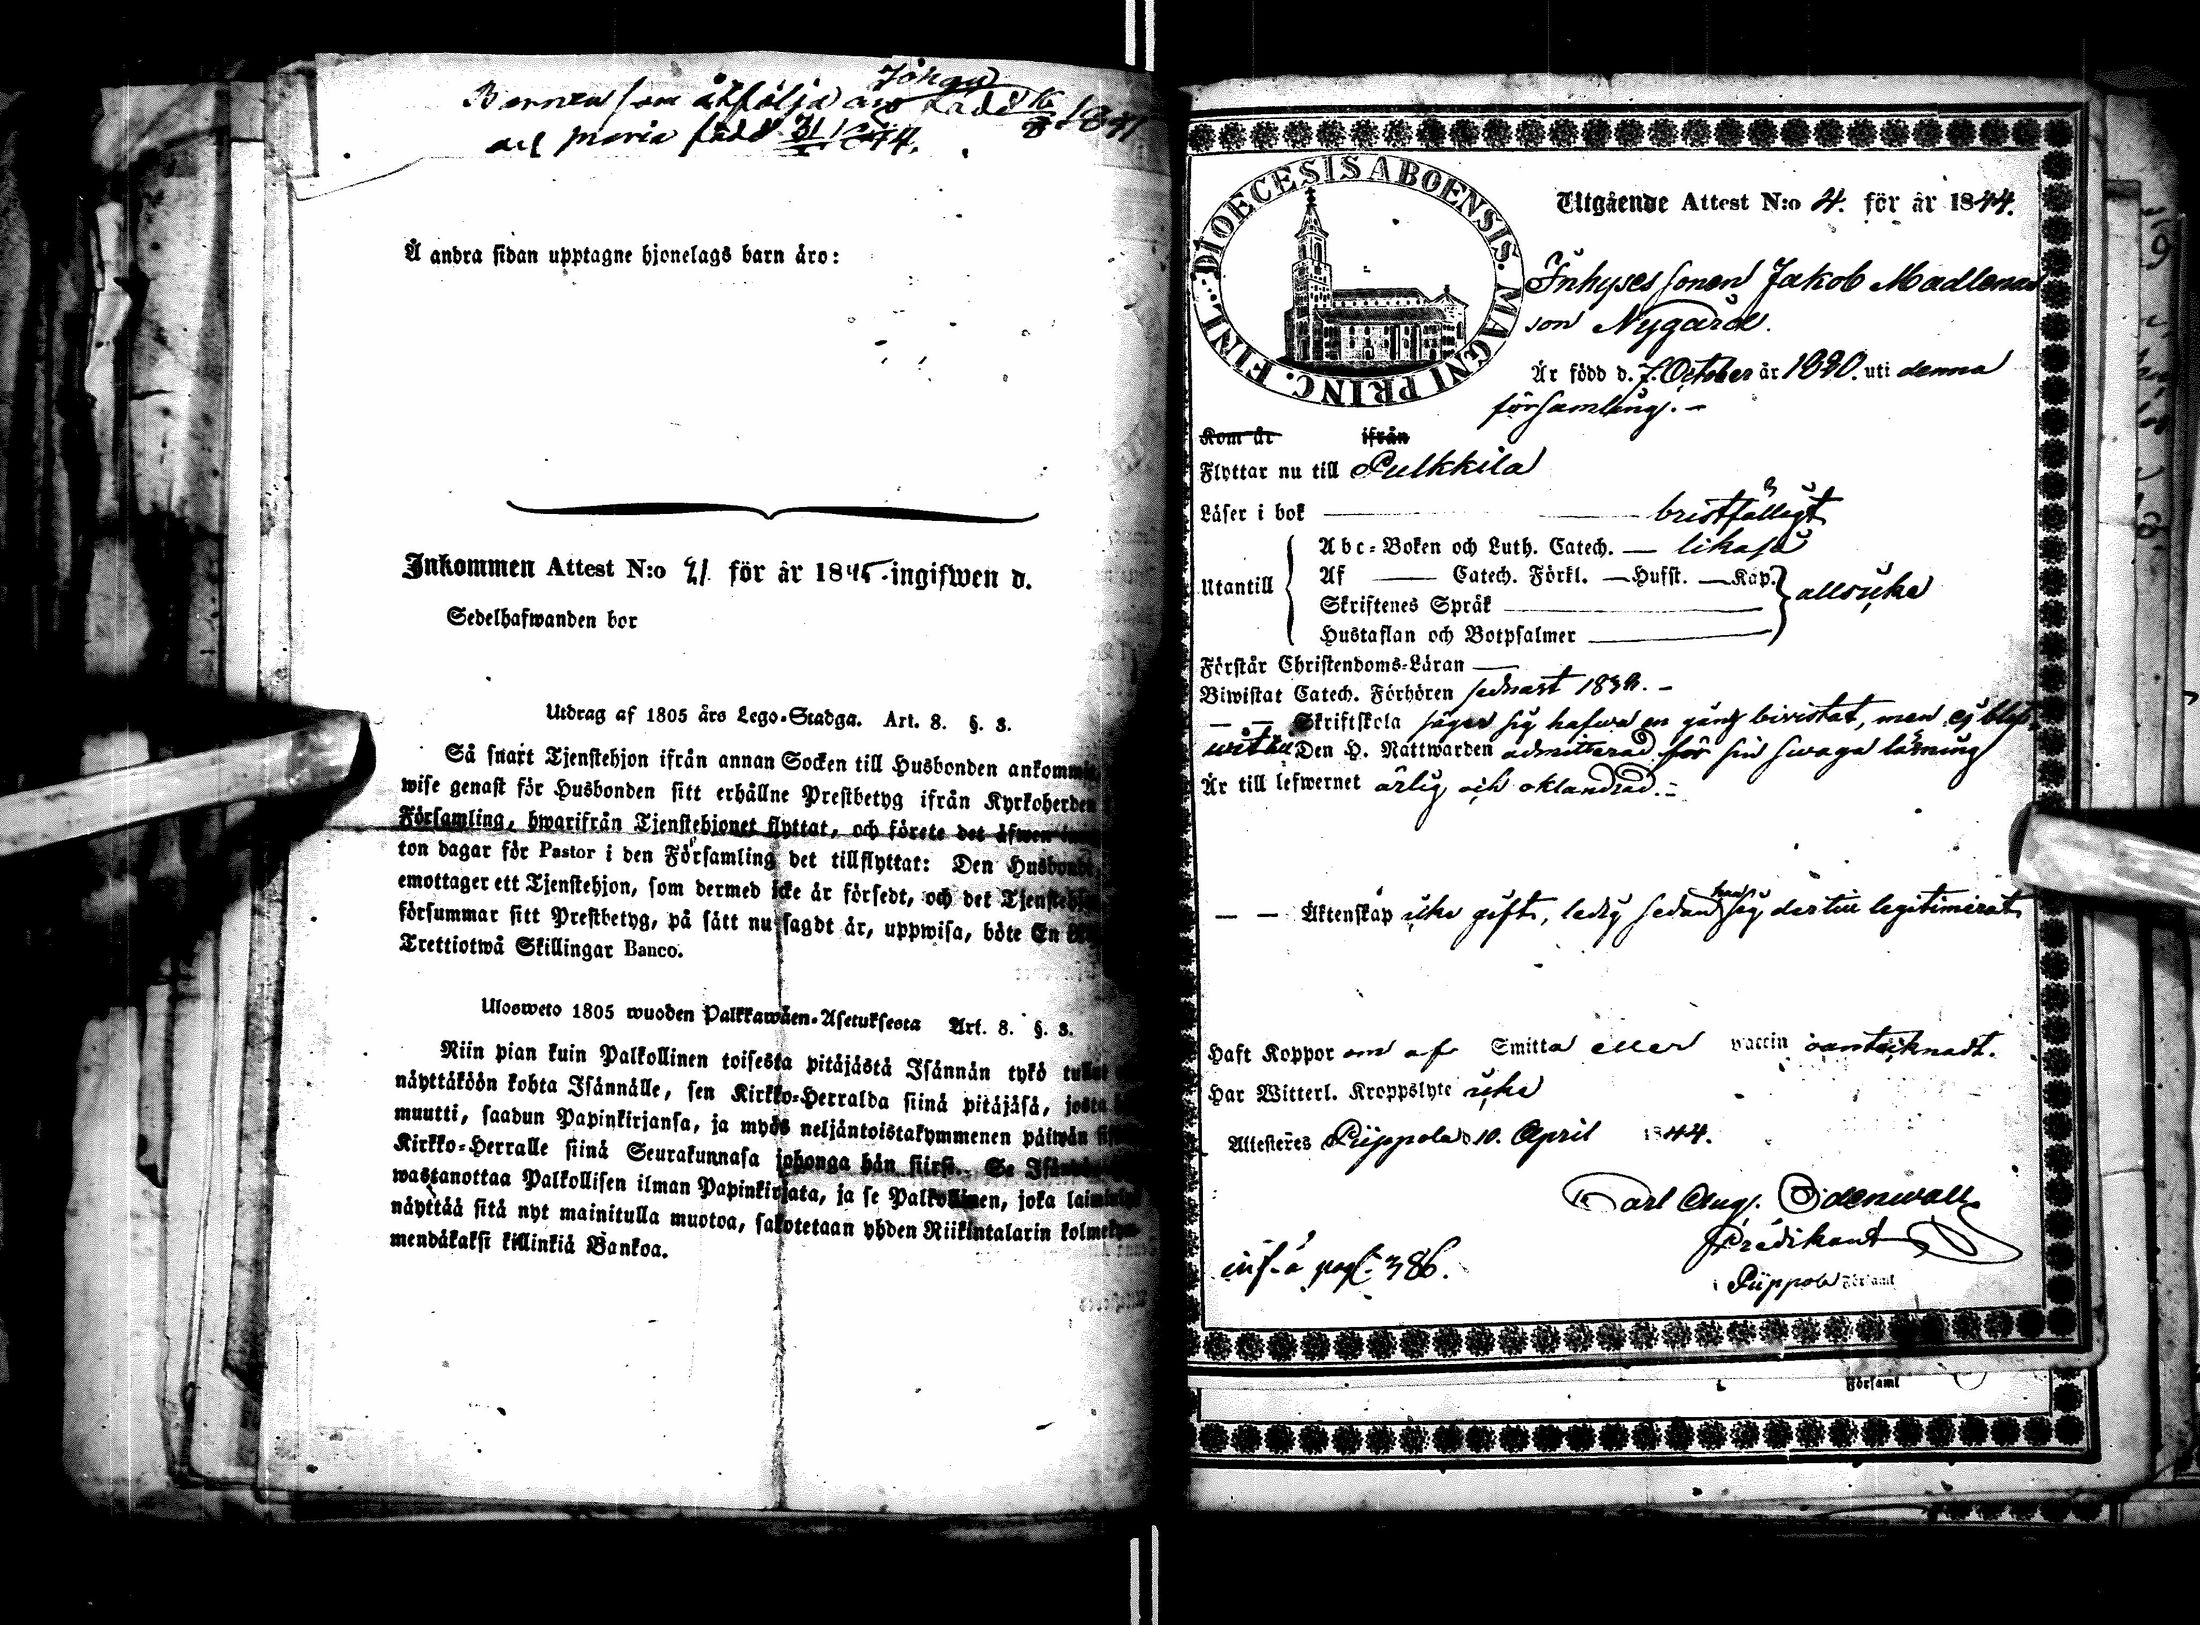 Barnen som åtfölja äro Johan född 16/8 1841
och Maria född 31/1 1844.
Å andra sidan upptagne hjonelags barn äro:
Inkommen Attest N:o 21 för år 1845 ingifwen d.
Sedelhafwanden bor
Utdrag af 1805 års Lego-Stadga. Art. 8. §. 3.
Så snart Tjenstehjon ifrån annan Socken till Husbonden ankommit,
wise genast för Husbonden sitt erhållne Prestbetyg ifrån Kyrkoherden
Församling, hwarifrån Tjenstehjonet flyttat, och förete det äfwen
ton dagar för Pastor i den Församling det tillflyttat: Den Husbonde,
emottager ett Tjenstehjon, som dermed icke är försedt, och det Tjenstehjon
försummar sitt Prestbetyg, på sätt nu sagdt är, uppwisa, böte En
Trettiotwå Skillingar Banco.
Ulosweto 1805 wuoden Palkkawäen-Asetuksesta Art. 8. §. 3.
Niin pian kuin Palkollinen toisesta pitäjästä Isännän tykö tullut
näyttäköön kohta Isännälle, sen Kirkko-Herralda siinä pitäjäsä, josta
muutti, saadun Papinkirjansa, ja myös neljäntoistakymmenen päiwän
Kirkko-Herralle siinä Seurakunnasa johonga hän siirsi. Se Isändä
wastanottaa Palkollisen ilman Papinkirjata, ja se Palkollinen, joka
näyttää sitä nyt mainitulla muotoa, sakotetaan yhden Riikintalarin kolmekym-
mendäkaksi killinkiä Bankoa.
DIOECESIS ABOENSIS. MAGNI PRINC. FINL.
Utgående Attest N:o 4. för år 1844.
Inhyses sonen Jakob Madlenas
son Nygård.
Är född d. 7. October år 1820. uti denna
församling. -
Kom år ifrån
Flyttar nu till Pulkkila
Läser i bok bristfälligt
Utantill
Abc-Boken och Luth. Catech. likaså
Af Catech. Förkl. Husst. Kap.
Skriftenes Språk
Hustaflan och Botpsalmer
allsicke
Förstår Christendoms-Läran
Biwistat Catech. Förhören sednast 1839. -
Skriftskola säger sig hafwa en gång biwistat, men ej blif-
wit till Den H. Nattwarden admitterad för sin swaga läsning
Är till lefwernet ärlig och oklandrad. -
Äktenskap icke gift, ledig sedan han sig dertill legitimerat
Haft Koppor om af Smitta eller vaccin oantecknadt.
Har Witterl. Kroppslyte icke
Attesteres Piippola d 10. April 1844.
Carl Aug. Odenwall
Predikant
i Piippola Församl
inf. å pag. 386.
Församl